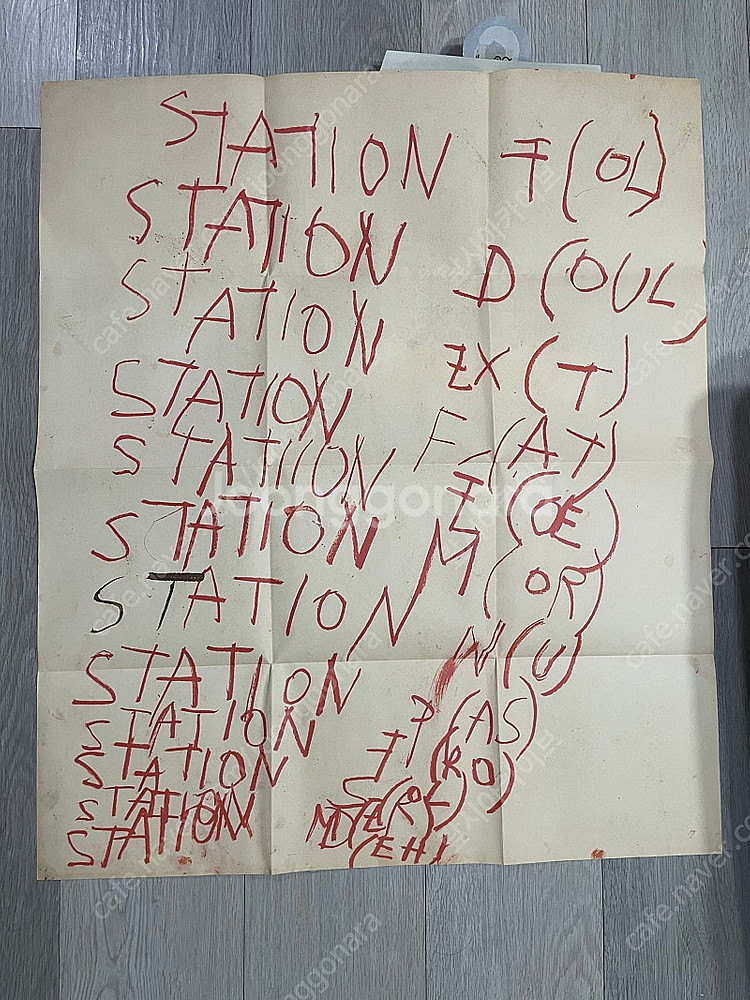 STATION F(OL)
STATION
STATION D(OUL)
STATION EX(T)
STATIION F(AT)
STATION I(OE)
STATION M(OR)
STATION N(U)
STATION P(AS)
STATION I(RO)
STATION
STATION (EH)
joonggonara
cafe.naver.com